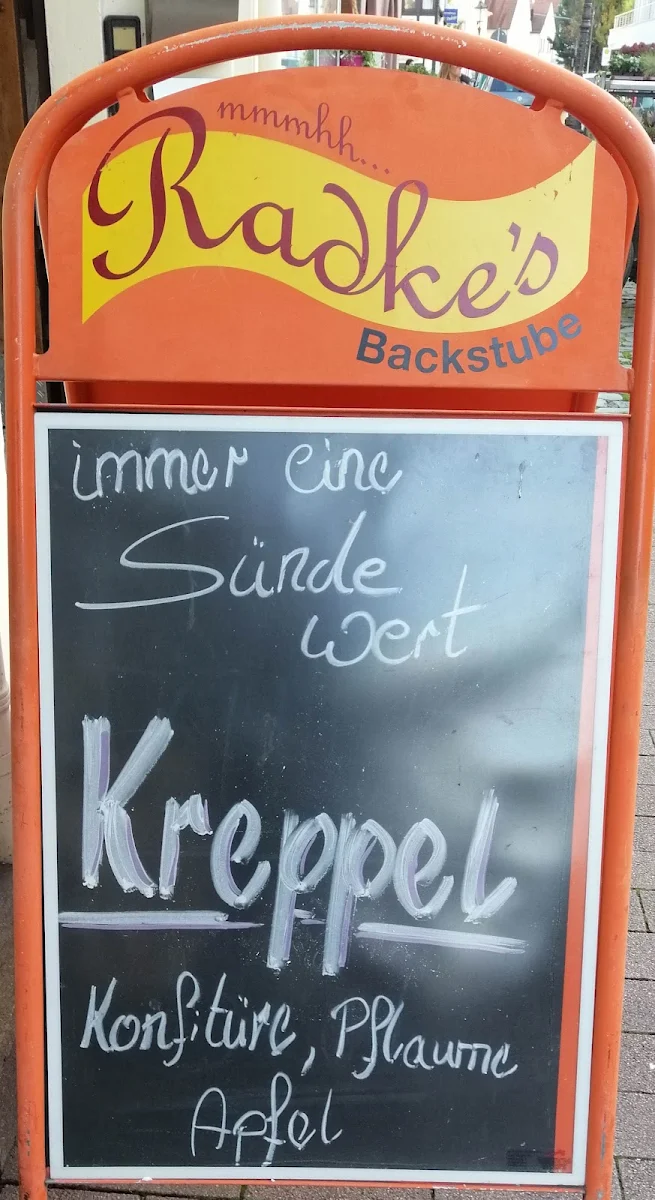 mmmhh...
Radke's
Backstube
immer eine
Sünde
wert
Kreppel
Konfitüre, Pflaume
Apfel